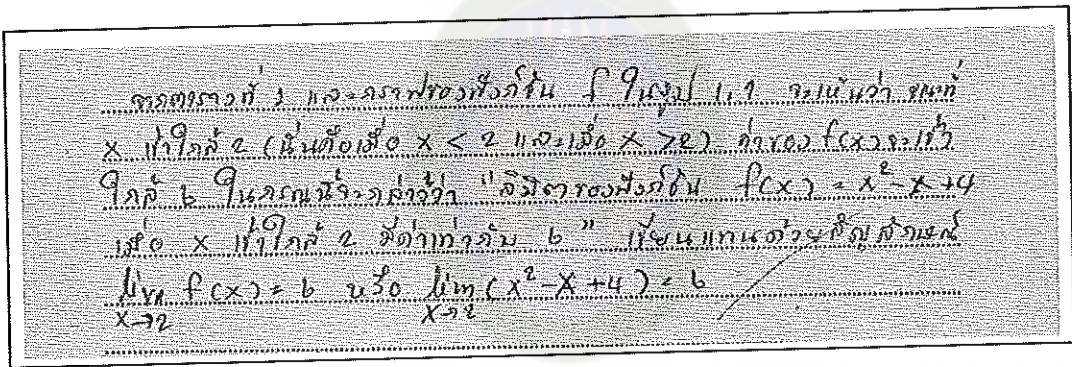 จากตารางที่ 1 และกราฟของฟังก์ชัน f ในรูป 1.1 จะเห็นว่า ขณะที่
x เข้าใกล้ 2 (นั่นคือเมื่อ x < 2 และเมื่อ x > 2) ค่าของ f(x) จะเข้า
ใกล้ 6 ในกรณีนี้จะกล่าวว่า "ลิมิตของฟังก์ชัน f(x) = x² - x + 4
เมื่อ x เข้าใกล้ 2 มีค่าเท่ากับ 6" เขียนแทนด้วยสัญลักษณ์
lim f(x) = 6 หรือ lim (x² - x + 4) = 6
x→2 x→2